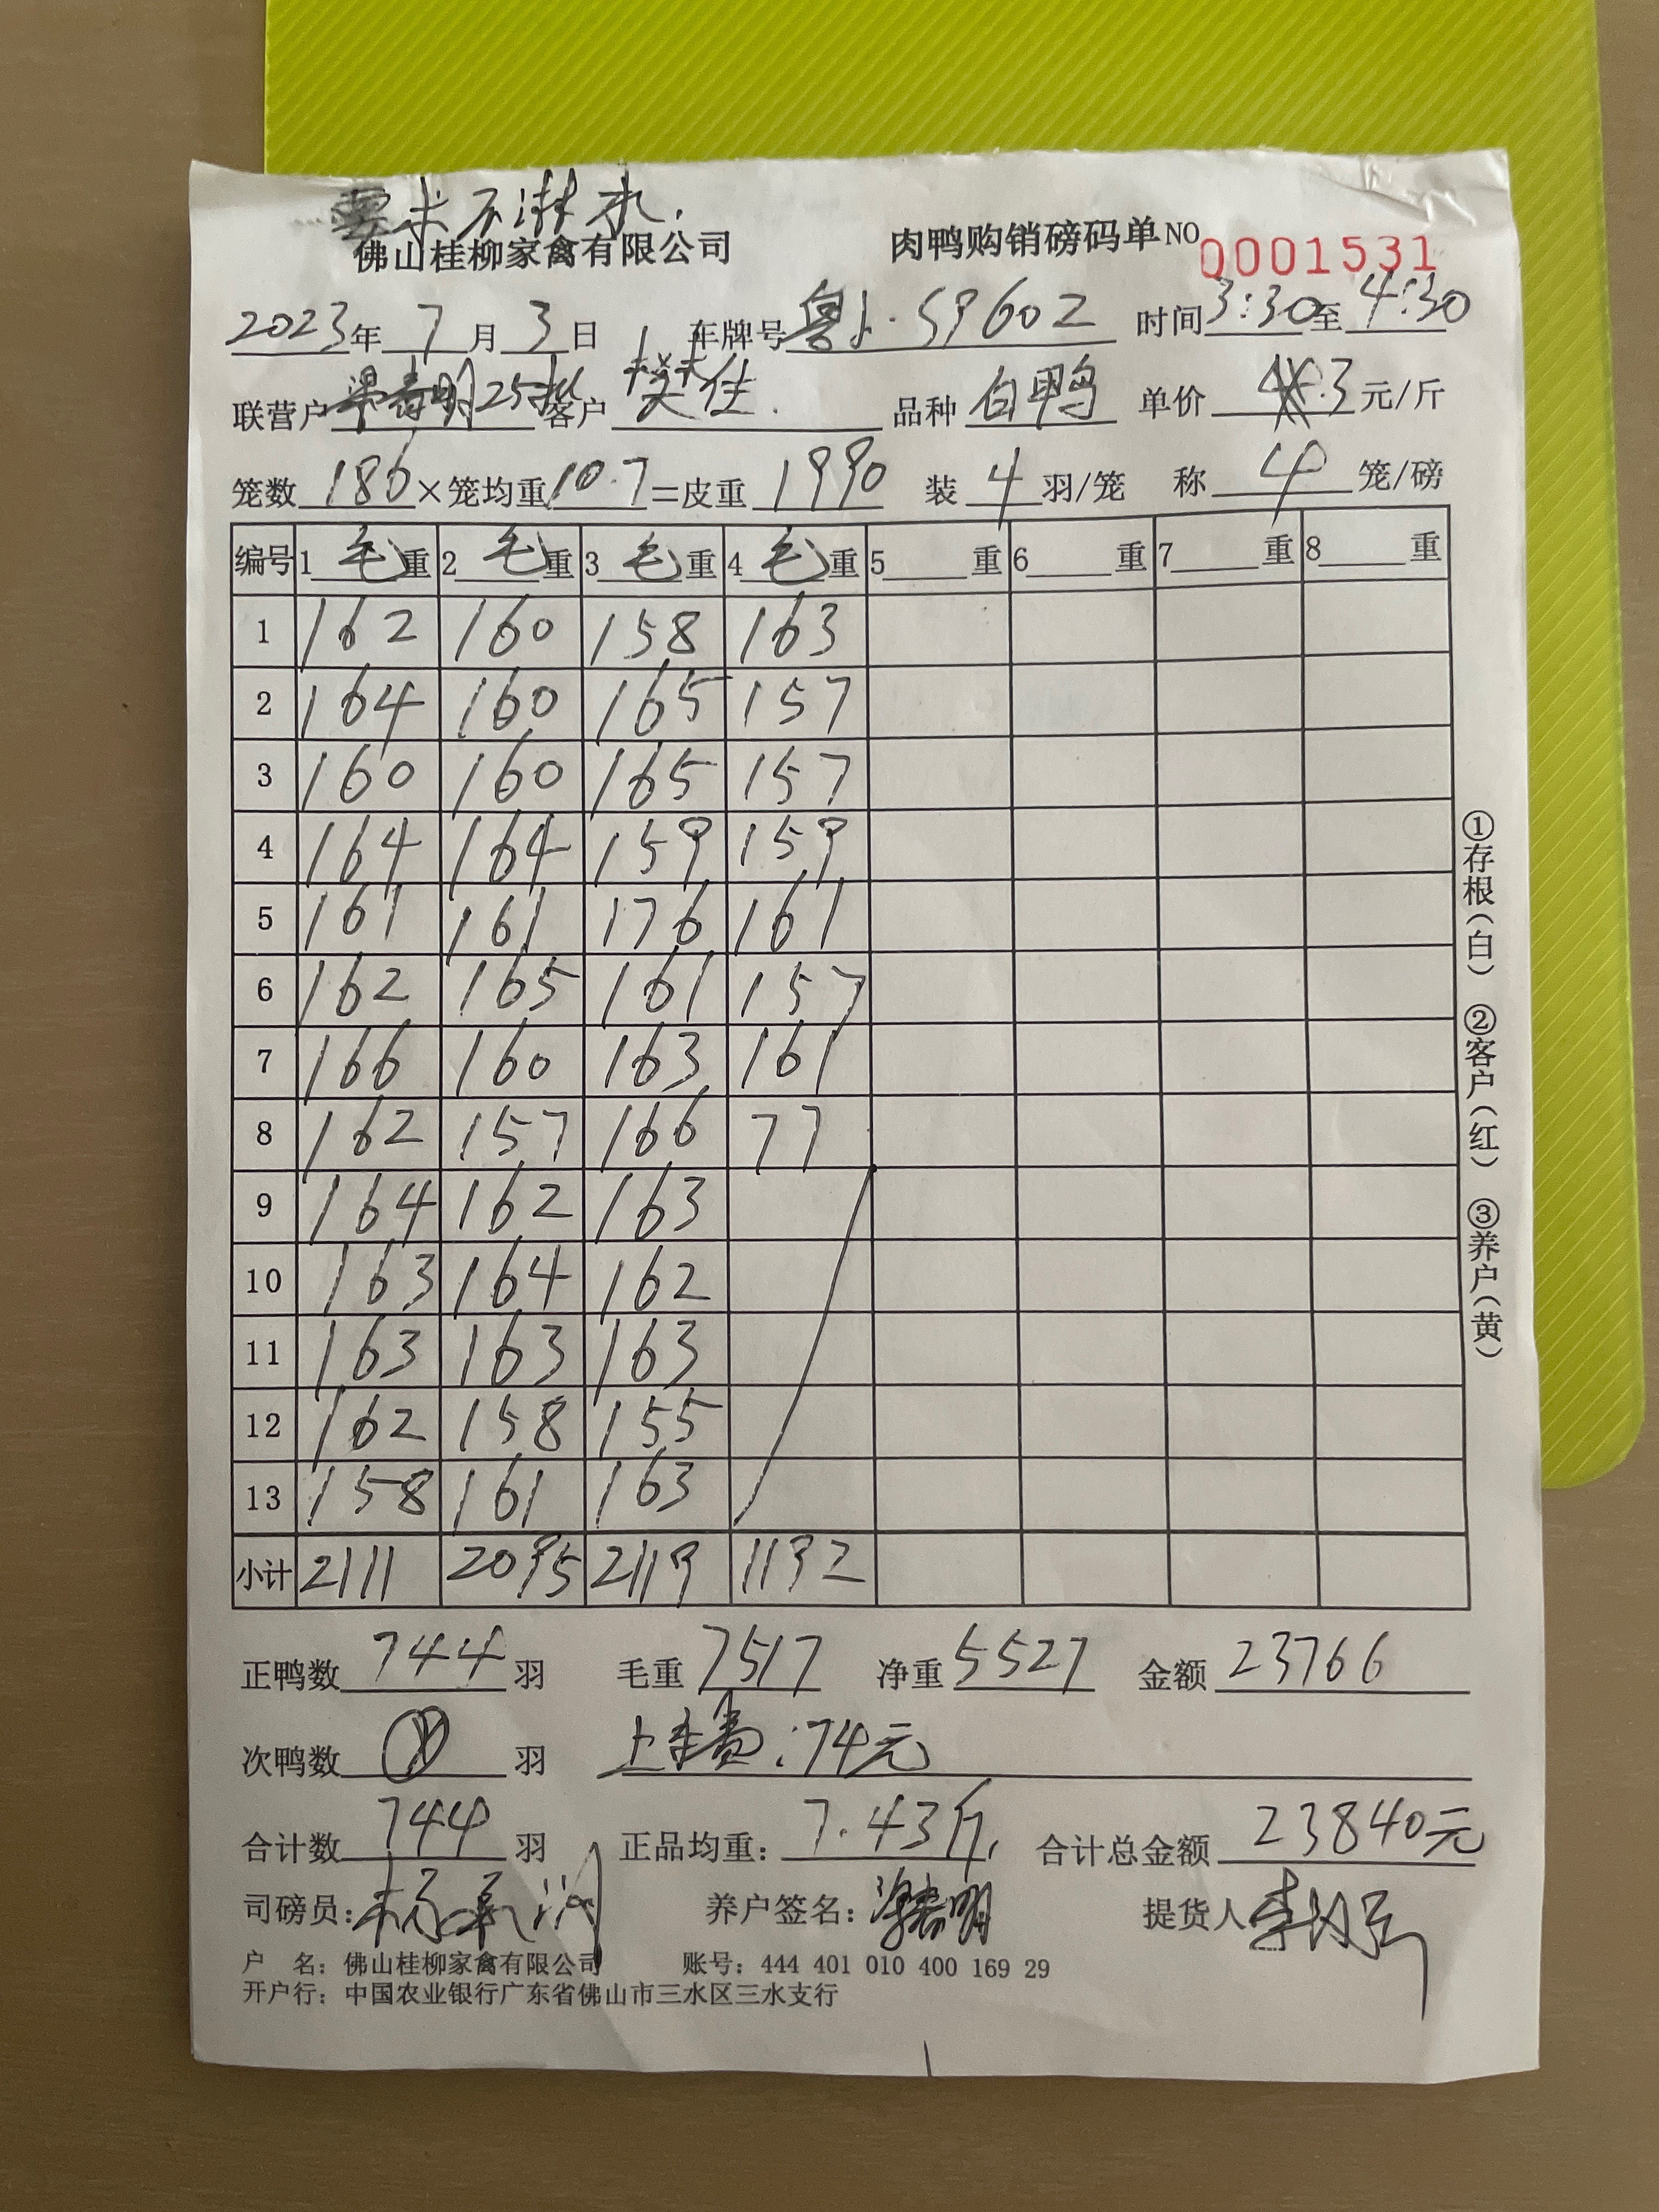 要求不淋水.
佛山桂柳家禽有限公司 肉鸭购销磅码单 NO 0001531
2023年 7 月 3 日 车牌号 粤 S9602 时间 3:30 至 4:30
联营户 25批 客户 樊佳. 品种 白鸭 单价 4.3 元/斤
笼数 186 ×笼均重 10.7 =皮重 1990 装 4 羽/笼 称 4 笼/磅
编号 1 毛 重 2 毛 重 3 毛 重 4 毛 重 5 重 6 重 7 重 8 重
1 162 160 158 163
2 164 160 165 157
3 160 160 165 157
4 164 164 159 159
5 161 161 176 161
6 162 165 161 157
7 166 160 163 161
8 162 157 166 77
9 164 162 163
10 163 164 162
11 163 163 163
12 162 158 155
13 158 161 163
小计 2111 2095 2119 1192
正鸭数 744 羽 毛重 7517 净重 5527 金额 23766
次鸭数 羽 上车费:74元
合计数 744 羽 正品均重: 7.43斤. 合计总金额 23840元
司磅员: 养户签名: 提货人
户 名: 佛山桂柳家禽有限公司 账号: 444 401 010 400 169 29
开户行: 中国农业银行广东省佛山市三水区三水支行
①存根(白) ②客户(红) ③养户(黄)